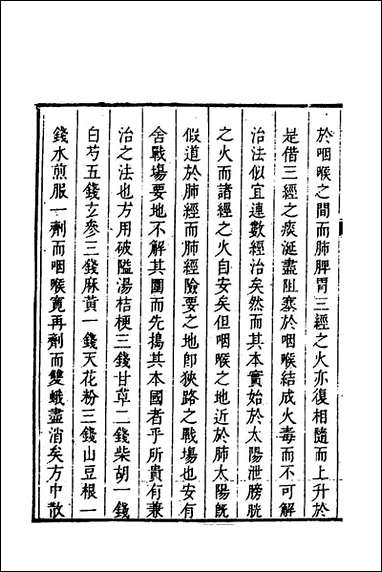 於咽喉之間而肺脾胃三經之火亦復相隨而上升於
是借三經之痰涎盡阻塞於咽喉結成火毒而不可解
治法似宜連數經治矣然而其本實始於太陽泄膀胱
之火而諸經之火自安矣但咽喉之地近於肺太陽旣
假道於肺經而肺經險要之地卽狹路之戰場也安有
舍戰場要地不解其圍而先搗其本國者乎所貴有兼
治之法也方用破隘湯桔梗三錢甘草二錢柴胡一錢
白芍五錢玄參三錢麻黃一錢天花粉三錢山豆根一
錢水煎服一劑而咽喉寬再劑而雙蛾盡消矣方中散